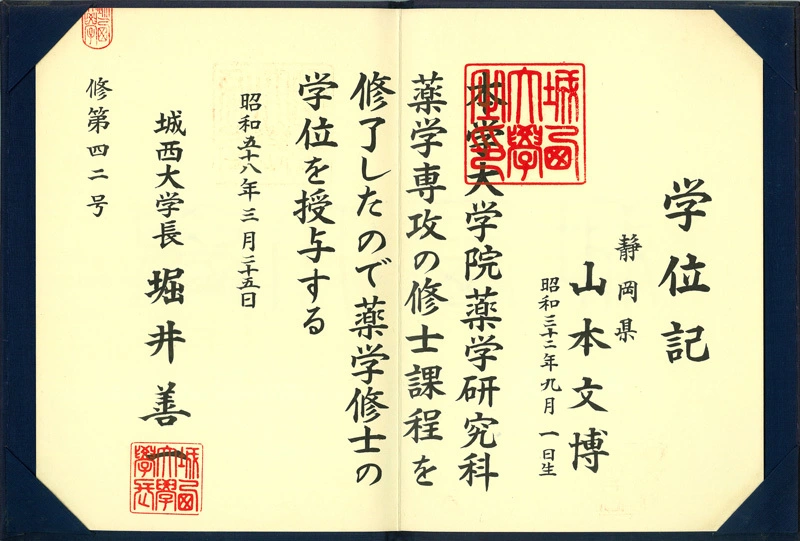 学位記
静岡県
山本文博
昭和三十二年九月一日生
本学大学院薬学研究科
薬学専攻の修士課程を
修了したので薬学修士の
学位を授与する
昭和五十八年三月二十五日
城西大学長 堀井善一
修第四二号
城西大学
城西大学長